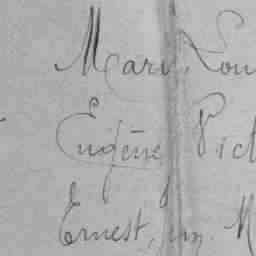 Mary Lou
Eugène Vict
Ernest,